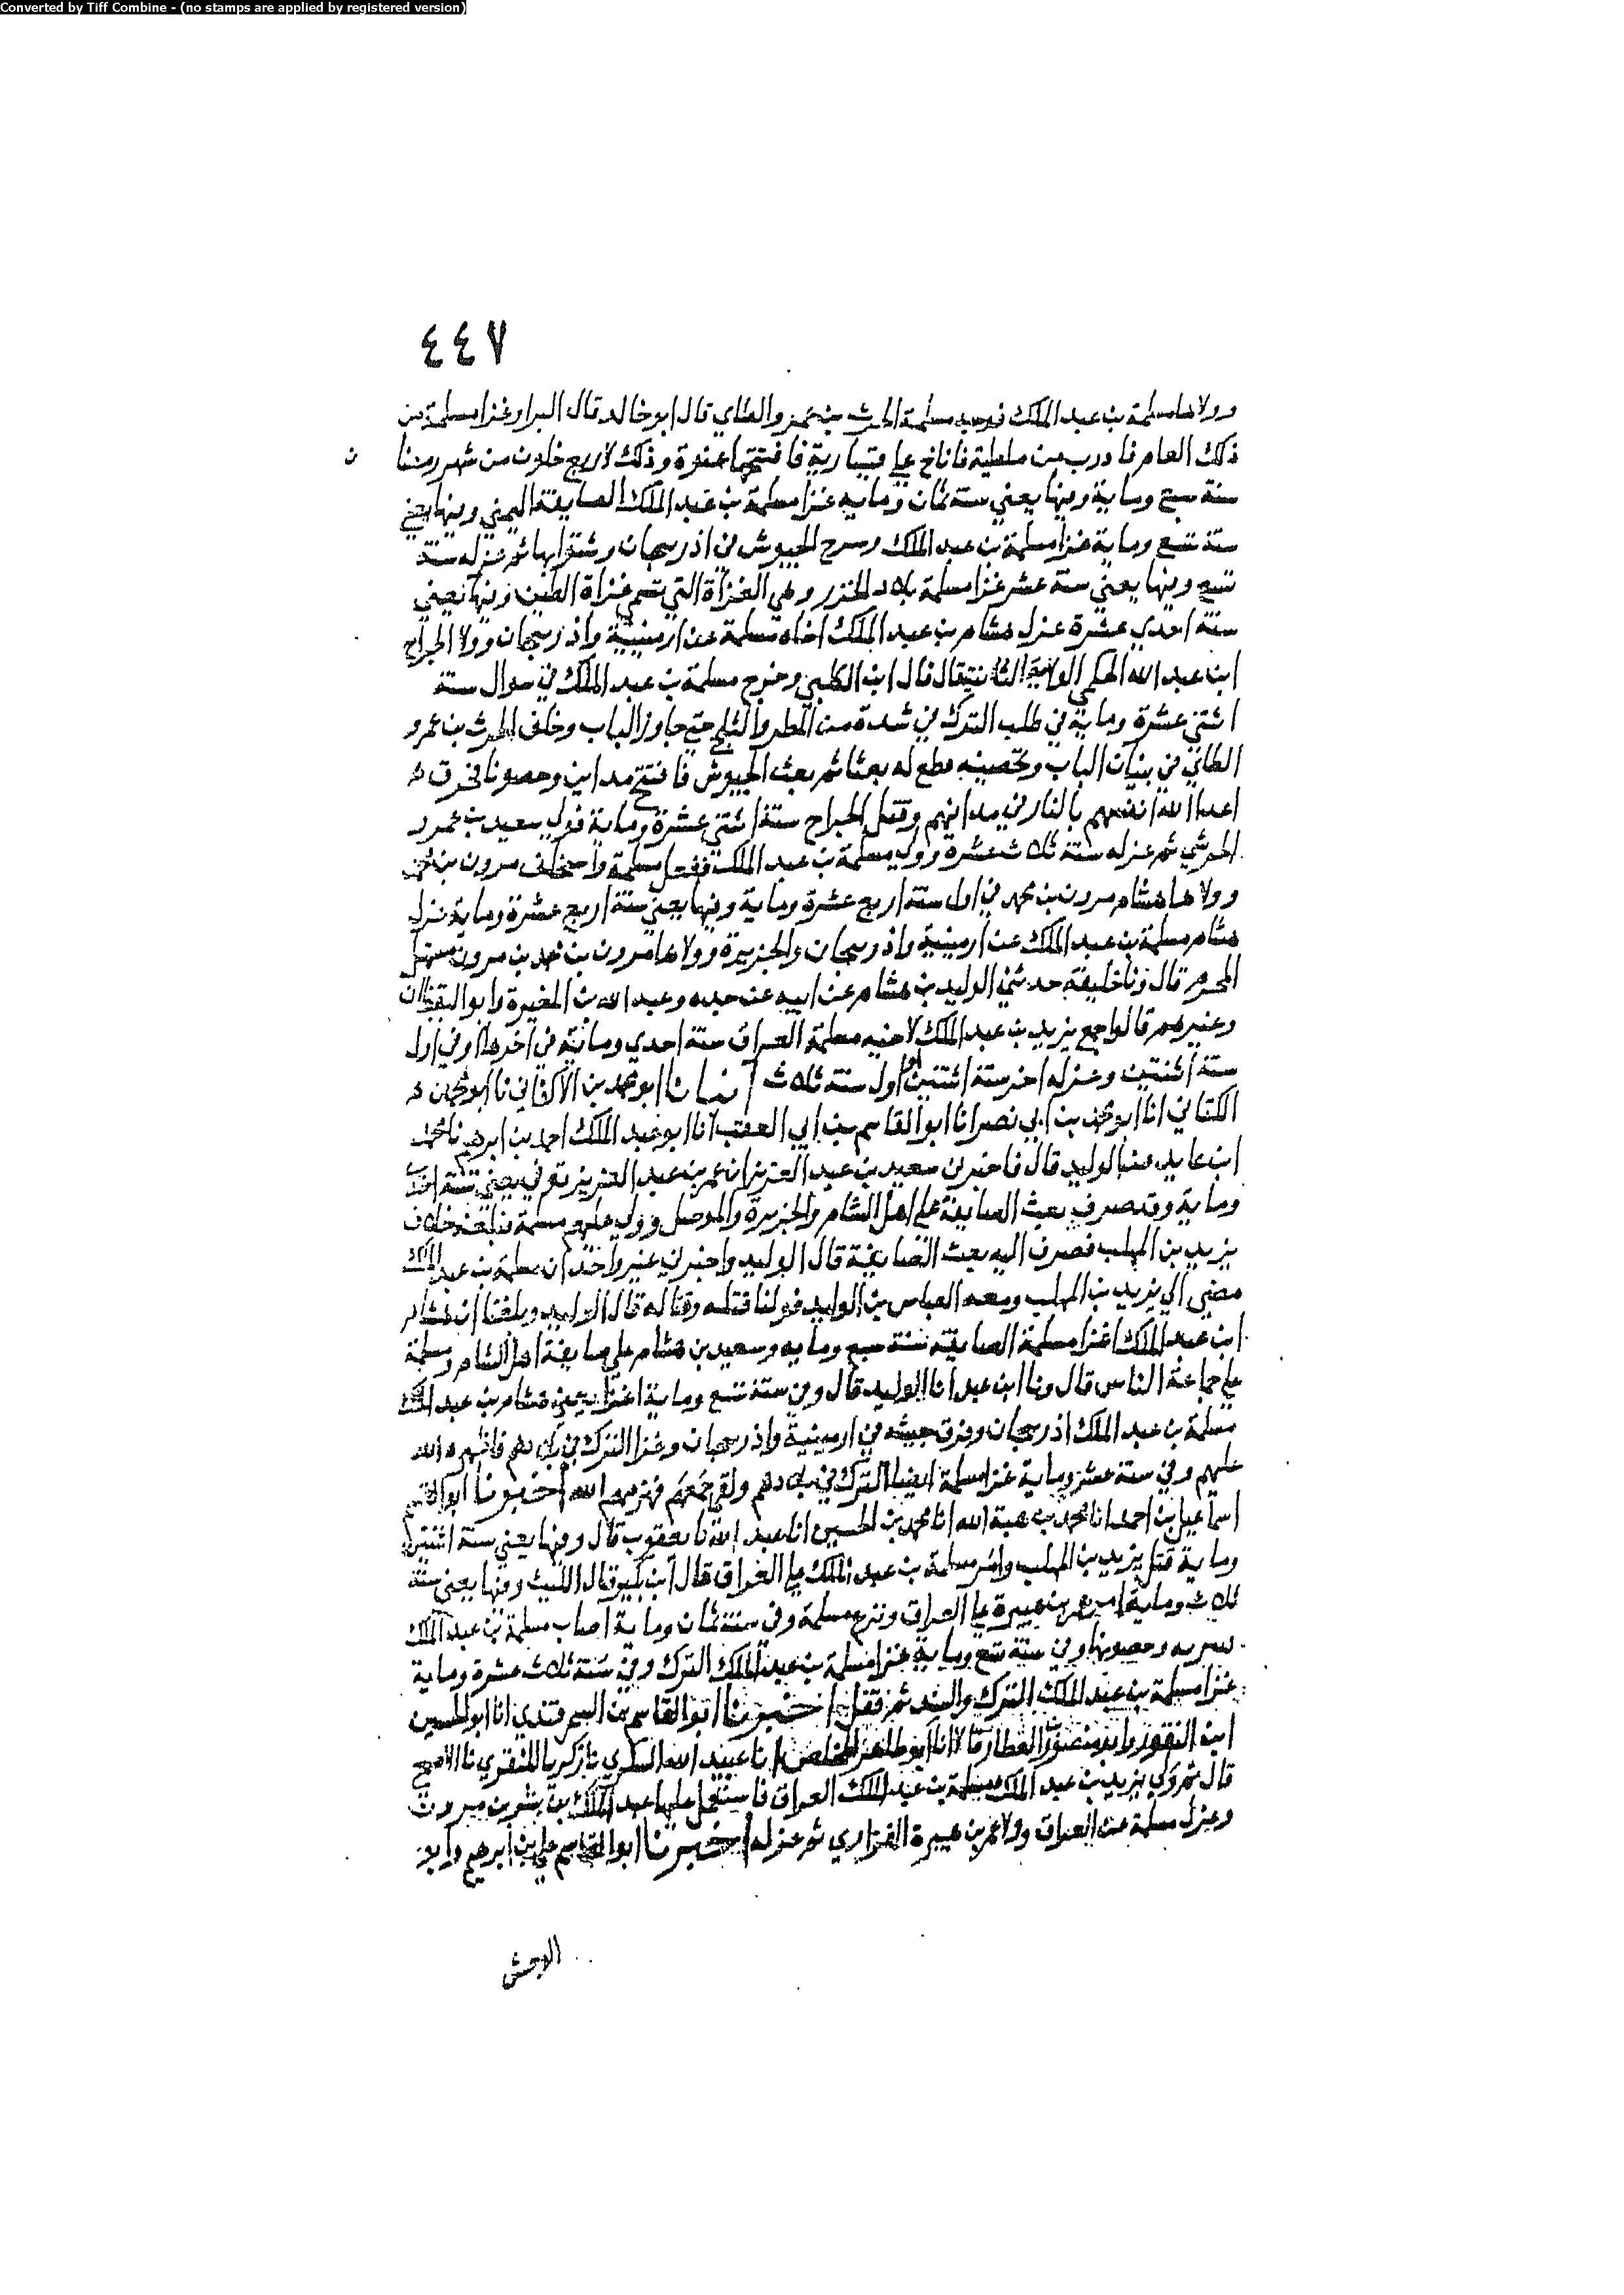 Converted by Tiff Combine - (no stamps are applied by registered version)
٤٤٧
وولاها مسلمة بن عبد الملك فوجه مسلمة الحرث بن عمرو الطاي قال ابو خالد قال البرا وغزا مسلمة من
ذلك العام فادرب من ملطية فاناخ علي قيسارية فافتتحها عنوة وذلك لاربع خلون من شهر رمضا ن
سنة سبع وماية وفيها يعني سنة ثمان ومايه غزا مسلمة بن عبد الملك الصايفة اليمني وفيها يعني
سنة تسع وماية غزا مسلمة بن عبد الملك وسرح الجيوش في اذربيجان وشتوا بها ثم عزله سنة
تسع وفيها يعني سنة عشر غزا مسلمة بلاد الخزر وهي الغزاة التي تسمي غزاة الطين وفيها يعني
سنة احدي عشرة عزل هشام بن عبد الملك اخاه مسلمة عن ارمينية واذربيجان وولا الجراح
ابن عبد الله الحكمي الولاية الثانية قال قال ابن الكلبي وخرج مسلمة بن عبد الملك في سوال سنة
اثنتي عشرة وماية في طلب الترك في شدة من المطر والثلج حتي جاوز الباب وخلف الحرث بن عمرو
الطائي في بنيان الباب وتحصينه قطع له بعثا ثم بعث الجيوش فافتتح مداين وحصونا فحرق
اعدا الله انفسهم بالنار في مداينهم وقتل الجراح سنة اثنتي عشرة وماية فولي سعيد بن عمرو
الحرشي ثم عزله سنة ثلاث عشرة وولي مسلمة بن عبد الملك فقفل مسلمة واستخلف مرون بن محمد
وولاها هشام مرون بن محمد في اول سنة اربع عشرة وماية وفيها يعني سنة اربع عشرة وماية عزل
هشام مسلمة بن عبد الملك عن ارمينية واذربيجان والجزيرة وولاها مرون بن محمد بن مرون مستهل
المحرم قال ونا خليفة حدثني الوليد بن هشام عن ابيه عن جده وعبد الله بن المغيرة وابو اليقظان
وغيرهم قالوا جمع يزيد بن عبد الملك لاخيه مسلمة العراق سنة احدي وماية في اخرها او في اول
سنة اثنتين وعزله اخر سنة اثنتين او اول سنة ثلاث انبانا ابو محمد بن الاكفاني نا ابو محمد
الكتاني انا ابو محمد بن ابي نصر انا ابو القاسم بن ابي العقب انا ابو عبد الملك احمد بن ابرهيم نا محمد
ابن عايد نا الوليد قال فاخبرني سعيد بن عبد العزيز ان عمر بن عبد العزيز توفي يعني سنة احدي
وماية وقد صرف بعث الصايفة علي اهل الشام والجزيرة والموصل وولي عليهم مسلمة فبلغه خلاف
يزيد بن المهلب فصرف اليه بعث الصايفة قال الوليد واخبرني غير واحد ان مسلمة بن عبد الملك
مضي الي يزيد بن المهلب ومعه العباس بن الوليد فوليا قتله وقتاله قال الوليد وبلغنا ان هشام
ابن عبد الملك اغزا مسلمة الصايفة سنة سبع ومايه وسعيد بن هشام علي صايفة اهل الشام ومسلمة
علي جماعة الناس قال ونا ابن عبد انا الوليد قال وفي سنة تسع وماية اغزا يعني هشام بن عبد الملك
مسلمة بن عبد الملك اذربيجان وفرق جيشه في ارمينية واذربيجان وغزا الترك في بلادهم فاظهره الله
عليهم وفي سنة عشر وماية غزا مسلمة ايضا الترك في بلادهم ولقي جمعهم فهزمهم الله اخبرنا ابو القاسم
اسماعيل بن احمد انا محمد بن هبة الله انا محمد بن الحسين انا عبد الله نا يعقوب قال وفيها يعني سنة اثنتين
وماية قتل يزيد بن المهلب وامر مسلمة بن عبد الملك علي العراق قال ابن بكير قال الليث وفيها يعني سنة
ثلاث وماية امر عمر بن هبيرة علي العراق ونزع مسلمة وفي سنة ثمان وماية اصاب مسلمة بن عبد الملك
وحصونها وفي سنة تسع وماية غزا مسلمة بن عبد الملك الترك وفي سنة ثلاث عشرة وماية
غزا مسلمة بن عبد الملك الترك والسند ثم قفل اخبرنا ابو القاسم بن السمرقندي انا ابو الحسين
ابن النقور وابو منصور العطار قالا انا ابو طاهر المخلص انا عبيد الله السكري نا زكريا المنقري نا الاصمعي
قال ثم ولي يزيد بن عبد الملك مسلمة بن عبد الملك العراق فاستعمل عليها عبد الملك بن بشر بن مروان
وعزل مسلمة عن العراق وولا عمر بن هبيرة الفزاري ثم عزله اخبرنا ابو القاسم علي بن ابرهيم وابو
الوحش